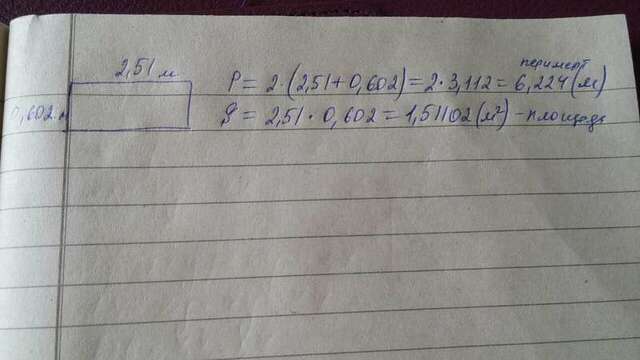 2,51 м
0,602 м
периметр
P = 2·(2,51+0,602) = 2·3,112 = 6,224 (м)
S = 2,51·0,602 = 1,51102 (м²) - площадь